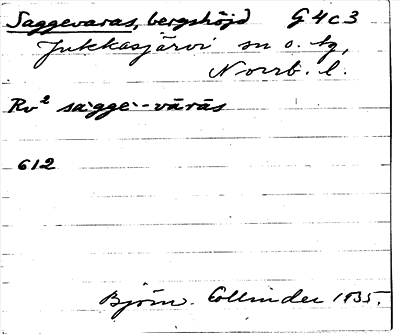 Saggevaras, bergshöjd G 4 c 3
Jukkasjärvi sn o. tg,
Norrb. l.
Rv² sa·gge·-vāràs
612
Björn. Collinder 1935.